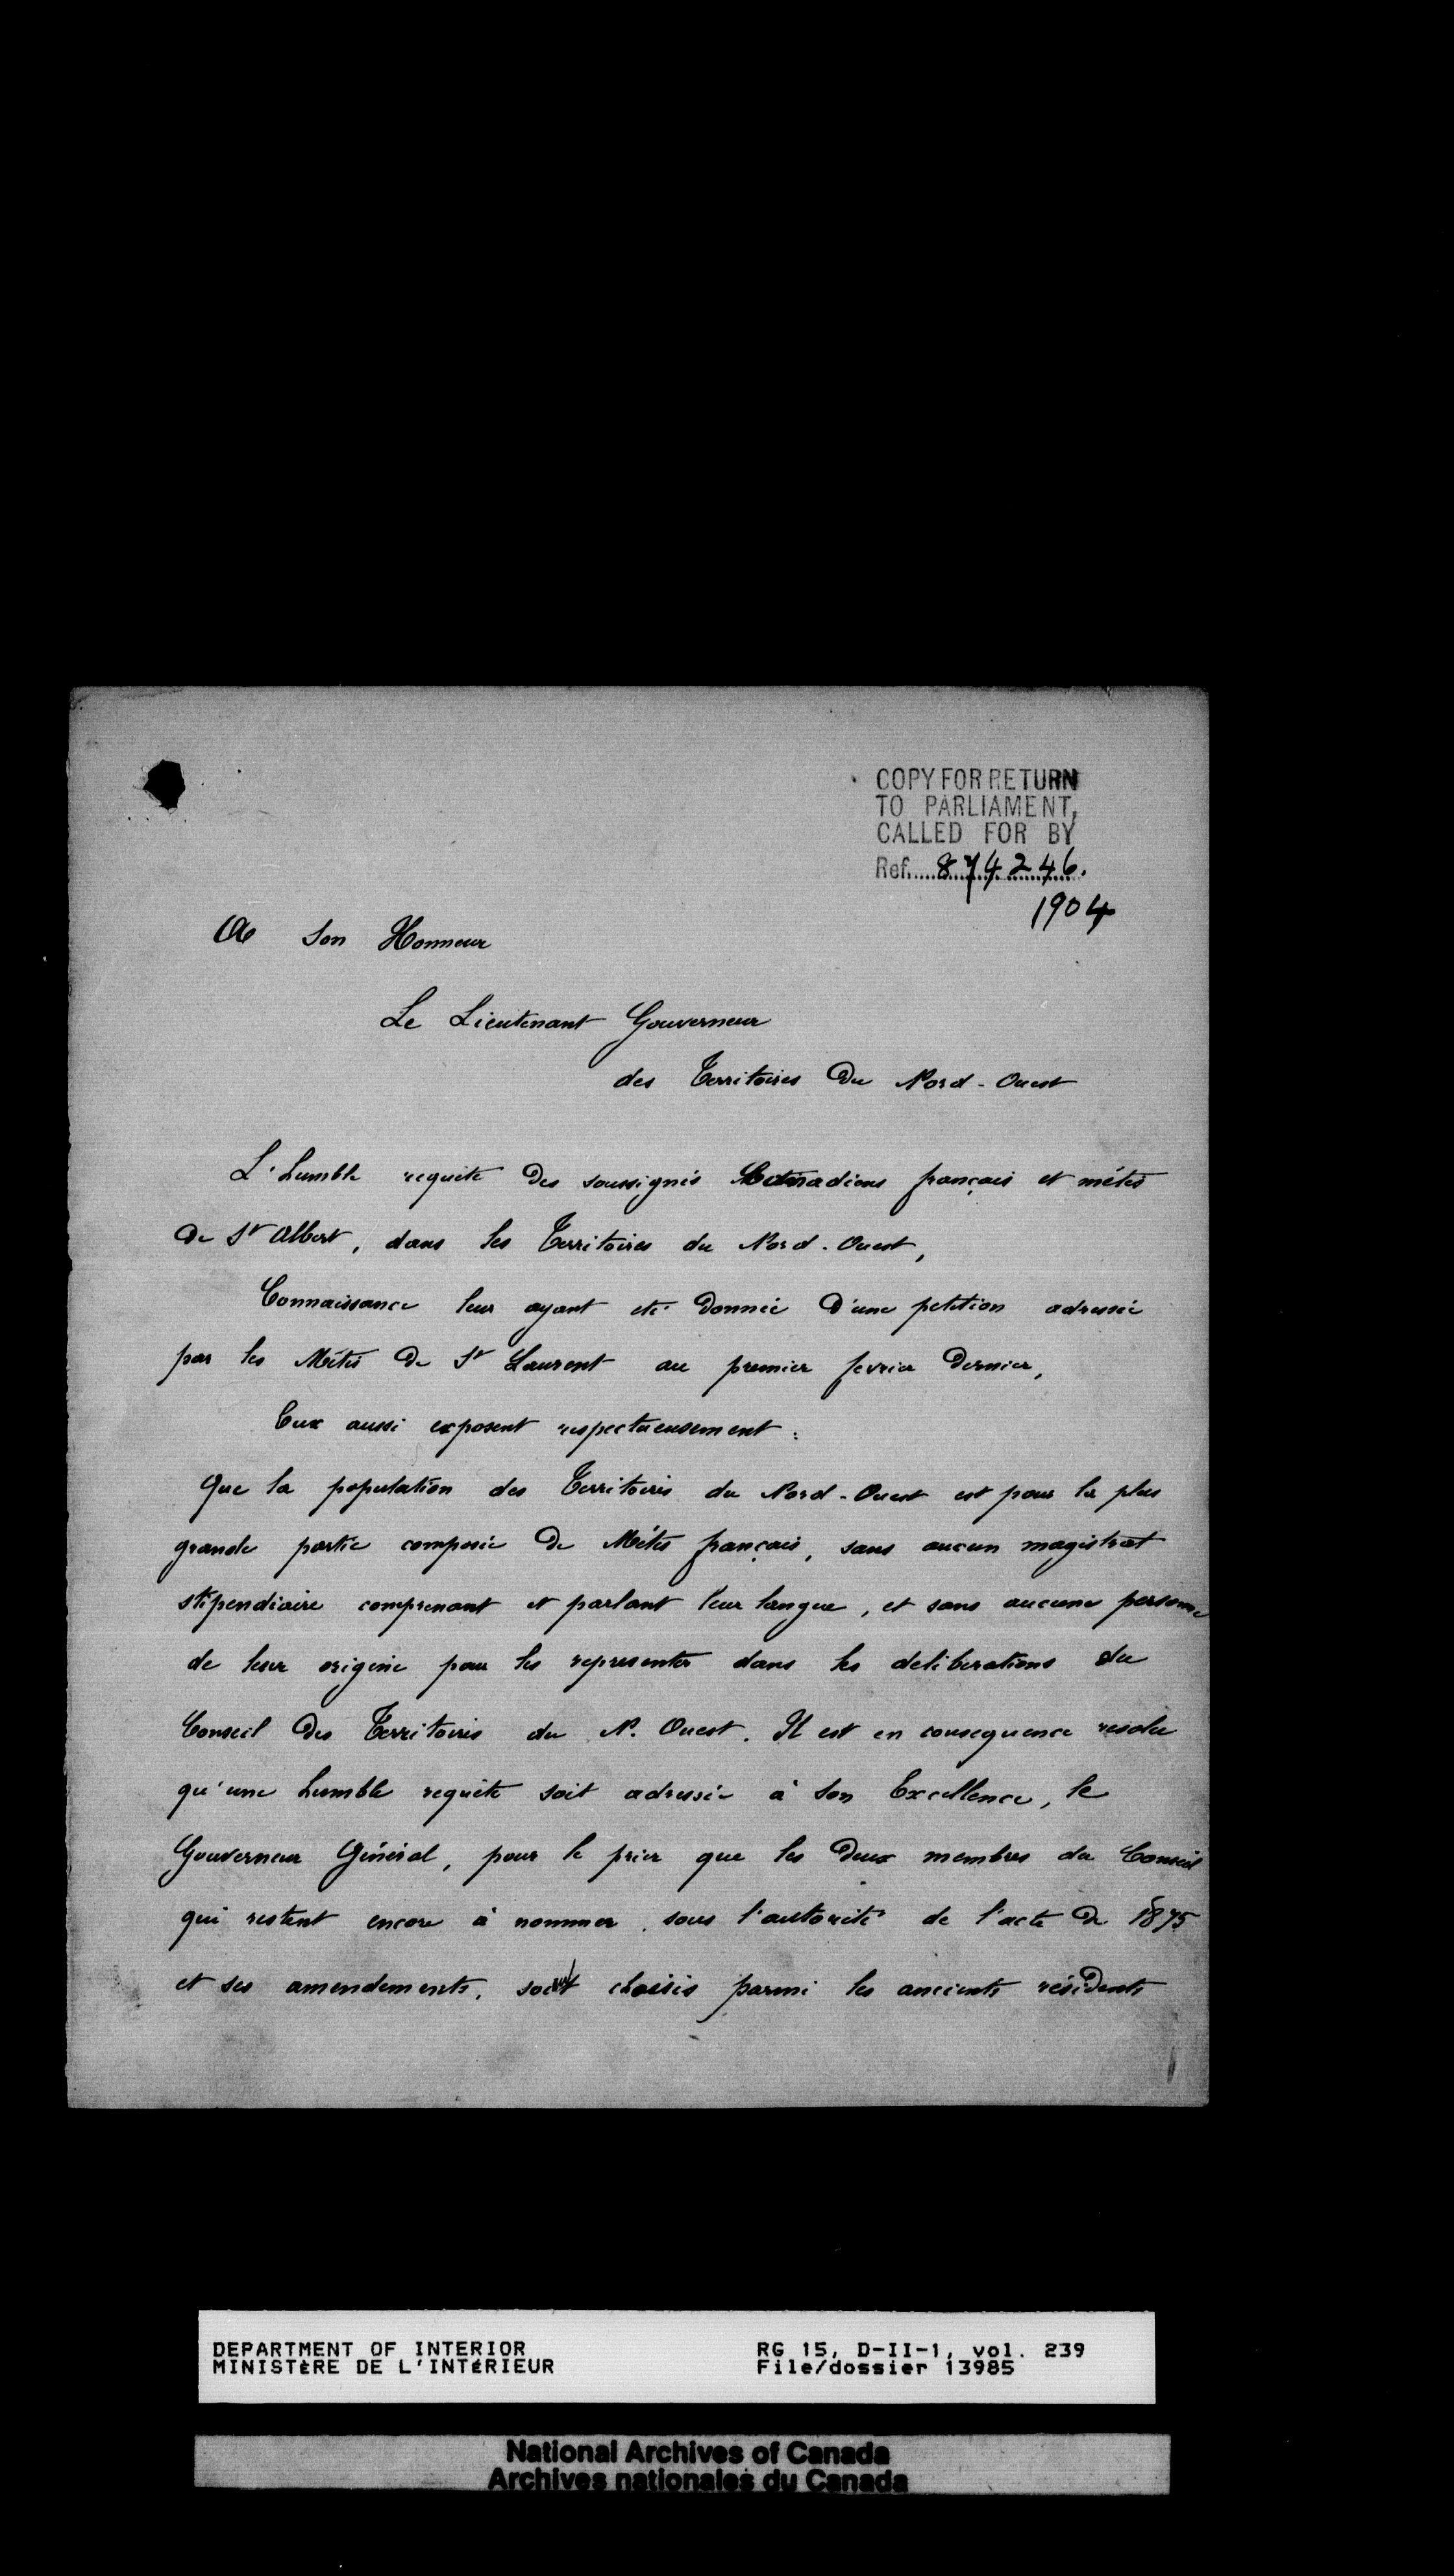 COPY FOR RETURN
TO PARLIAMENT,
CALLED FOR BY
Ref. 874246.
1904
A Son Honneur
Le Lieutenant Gouverneur
des Territoires du Nord-Ouest
L'humble requête des soussignés Canadiens français et métis
de St Albert, dans les Territoires du Nord-Ouest,
Connaissance leur ayant été donnée d'une petition adressée
par les Métis de St Laurent au premier fevrier dernier,
Eux aussi exposent respectueusement :
Que la population des Territoires du Nord-Ouest est pour la plus
grande partie composée de Métis français, sans aucun magistrat
stipendiaire comprenant et parlant leur langue, et sans aucune personne
de leur origine pour les representer dans les deliberations du
Conseil des Territoires du N. Ouest. Il est en consequence resolu
qu'une humble requête soit adressée à Son Excellence, le
Gouverneur Général, pour le prier que les deux membres du Conseil
qui restent encore à nommer, sous l'autorité de l'acte de 1875
et ses amendements, soient choisis parmi les anciens résidents
DEPARTMENT OF INTERIOR RG 15, D-II-1, vol. 239
MINISTÈRE DE L'INTÉRIEUR File/dossier 13985
National Archives of Canada
Archives nationales du Canada